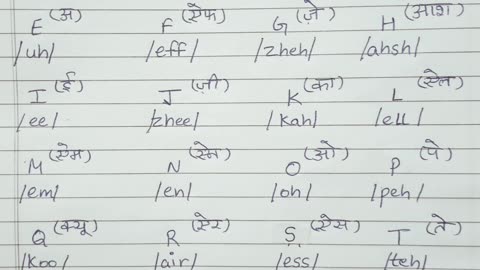 E (अ) F (ऐफ) G (ज़े) H (आश)
/uh/ /eff/ /zheh/ /ahsh/
I (ई) J (ज़ी) K (का) L (ऐल)
/ee/ /zhee/ /kah/ /ell/
M (ऐम) N (ऐन) O (ओ) P (पे)
/em/ /en/ /oh/ /peh/
Q (क्यू) R (ऐर) S (ऐस) T (ते)
/koo/ /air/ /ess/ /teh/